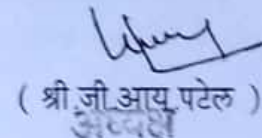 ( श्री जी.आय.पटेल )
अध्यक्ष